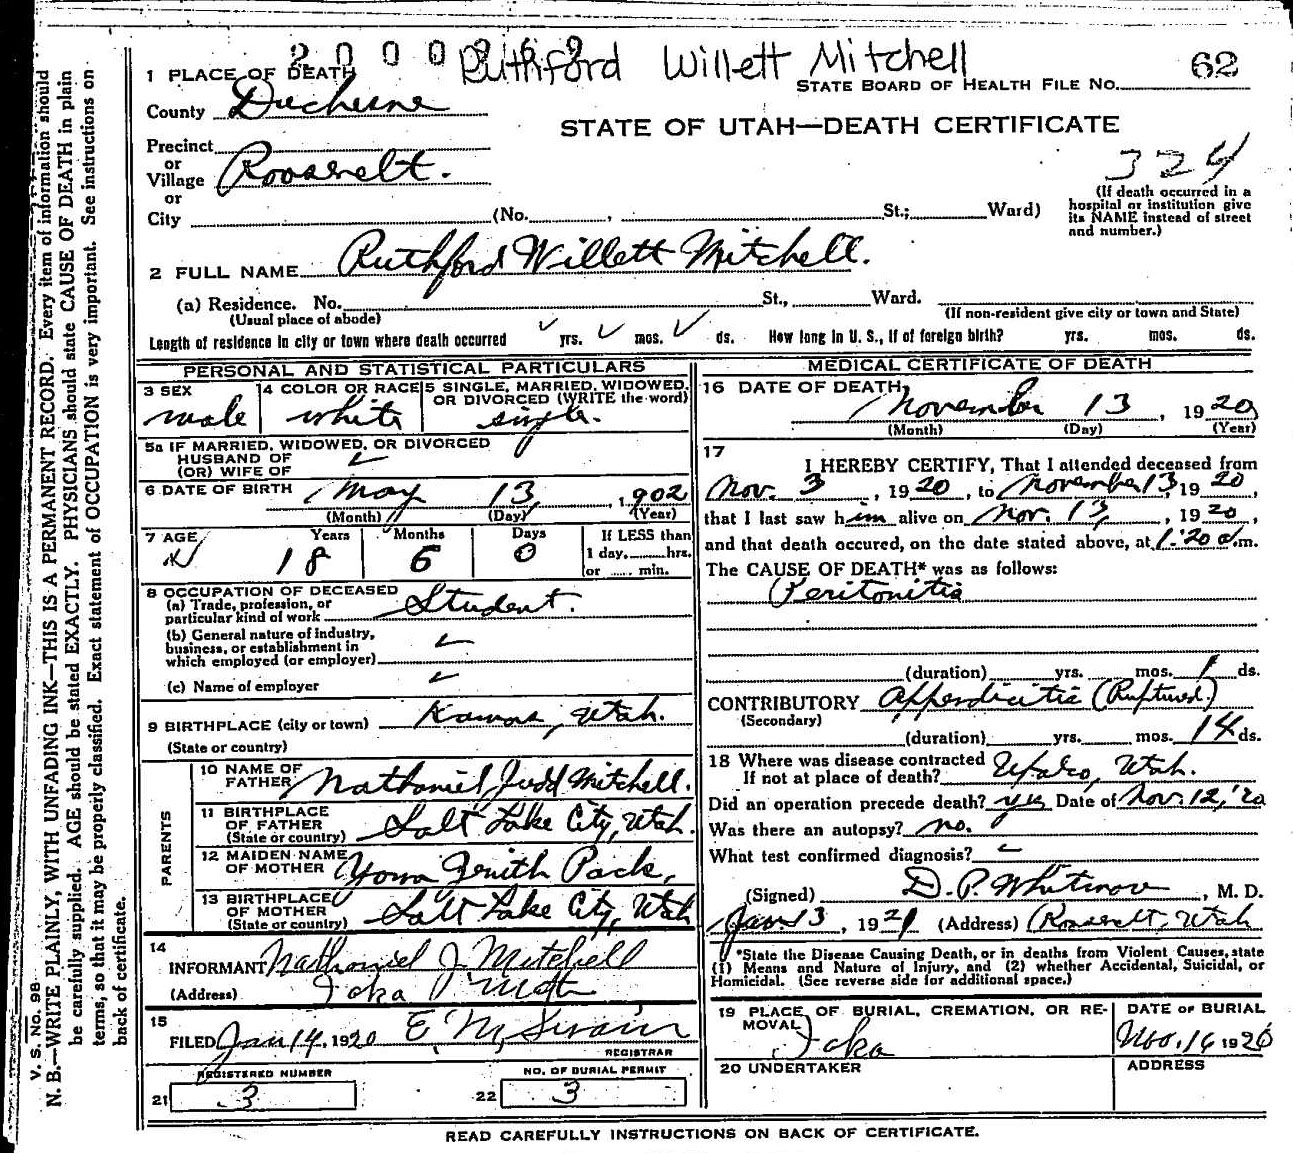 2000262 Ruthford Willett Mitchell 62
1 PLACE OF DEATH STATE BOARD OF HEALTH FILE NO.
County Duchesne
STATE OF UTAH—DEATH CERTIFICATE
Precinct
or
Village Roosevelt.
or
City (No. , St.; Ward)
324
(If death occurred in a
hospital or institution give
its NAME instead of street
and number.)
2 FULL NAME Ruthford Willett Mitchell.
(a) Residence. No. St., Ward.
(Usual place of abode) (If non-resident give city or town and State)
Length of residence in city or town where death occurred yrs. mos. ds. How long in U. S., if of foreign birth? yrs. mos. ds.
PERSONAL AND STATISTICAL PARTICULARS
3 SEX 4 COLOR OR RACE 5 SINGLE, MARRIED, WIDOWED,
OR DIVORCED (WRITE the word)
male white single.
5a IF MARRIED, WIDOWED, OR DIVORCED
HUSBAND OF
(OR) WIFE OF
6 DATE OF BIRTH May 13, 1902
(Month) (Day) (Year)
7 AGE Years Months Days If LESS than
1 day, hrs.
or min.
18 6 0
8 OCCUPATION OF DECEASED
(a) Trade, profession, or
particular kind of work Student.
(b) General nature of industry,
business, or establishment in
which employed (or employer)
(c) Name of employer
9 BIRTHPLACE (city or town) Kamas, Utah.
(State or country)
PARENTS
10 NAME OF
FATHER Nathaniel Judd Mitchell.
11 BIRTHPLACE
OF FATHER
(State or country) Salt Lake City, Utah.
12 MAIDEN NAME
OF MOTHER Zenith Pack,
13 BIRTHPLACE
OF MOTHER
(State or country) Salt Lake City, Utah
14
INFORMANT Nathaniel J Mitchell
(Address) Ioka Utah
15
FILED Jan 14, 1920 E. M. Swain
REGISTRAR
REGISTERED NUMBER NO. OF BURIAL PERMIT
21 3 22 3
MEDICAL CERTIFICATE OF DEATH
16 DATE OF DEATH, November 13, 1920
(Month) (Day) (Year)
17
I HEREBY CERTIFY, That I attended deceased from
Nov. 3, 1920, to November 13, 1920,
that I last saw him alive on Nov. 13, 1920,
and that death occured, on the date stated above, at 1:20 a.m.
The CAUSE OF DEATH* was as follows:
Peritonitis
(duration) yrs. mos. 1 ds.
CONTRIBUTORY Appendicitis (Ruptured)
(Secondary)
(duration) yrs. mos. 14 ds.
18 Where was disease contracted
If not at place of death? Upalco, Utah.
Did an operation precede death? yes Date of Nov. 12, '20
Was there an autopsy? no.
What test confirmed diagnosis?
(Signed) D. P. Whitmore, M. D.
Jan. 13, 1921 (Address) Roosevelt, Utah
*State the Disease Causing Death, or in deaths from Violent Causes, state
(1) Means and Nature of Injury, and (2) whether Accidental, Suicidal, or
Homicidal. (See reverse side for additional space.)
19 PLACE OF BURIAL, CREMATION, OR RE-
MOVAL Ioka
DATE OF BURIAL
Nov. 16 1920
20 UNDERTAKER ADDRESS
READ CAREFULLY INSTRUCTIONS ON BACK OF CERTIFICATE.
V. S. No. 98.
N. B.—WRITE PLAINLY, WITH UNFADING INK—THIS IS A PERMANENT RECORD. Every item of information should
be carefully supplied. AGE should be stated EXACTLY. PHYSICIANS should state CAUSE OF DEATH in plain
terms, so that it may be properly classified. Exact statement of OCCUPATION is very important. See instructions on
back of certificate.